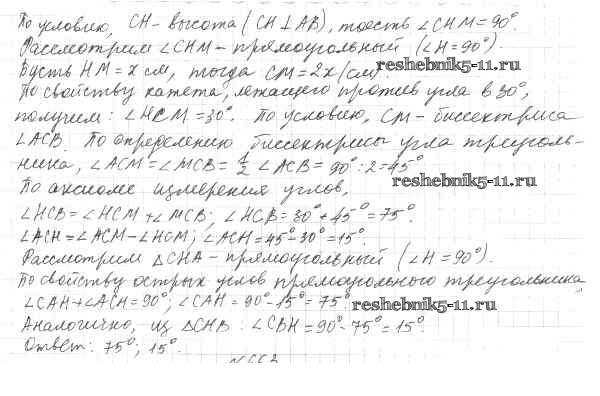 По условию, CH - высота (CH ⊥ AB), тоесть ∠CHM = 90°.
Рассмотрим ∠CHM - прямоугольный (∠H = 90°).
Пусть HM = x см, тогда CM = 2x (см).
reshebnik5-11.ru
По свойству катета, лежащего против угла в 30°,
получим: ∠HCM = 30°. По условию, CM - биссектриса
∠ACB. По определению биссектрисы угла треуголь-
ника, ∠ACM = ∠MCB = 1/2 ∠ACB = 90° : 2 = 45°
reshebnik5-11.ru
По аксиоме измерения углов,
∠HCB = ∠HCM + ∠MCB; ∠HCB = 30° + 45° = 75°.
∠ACH = ∠ACM - ∠HCM; ∠ACH = 45° - 30° = 15°.
Рассмотрим △CHA - прямоугольный (∠H = 90°).
По свойству острых углов прямоугольного треугольника,
∠CAH + ∠ACH = 90°; ∠CAH = 90° - 15° = 75°.
reshebnik5-11.ru
Аналогично, из △CHB: ∠CBH = 90° - 75° = 15°.
Ответ: 75°; 15°.